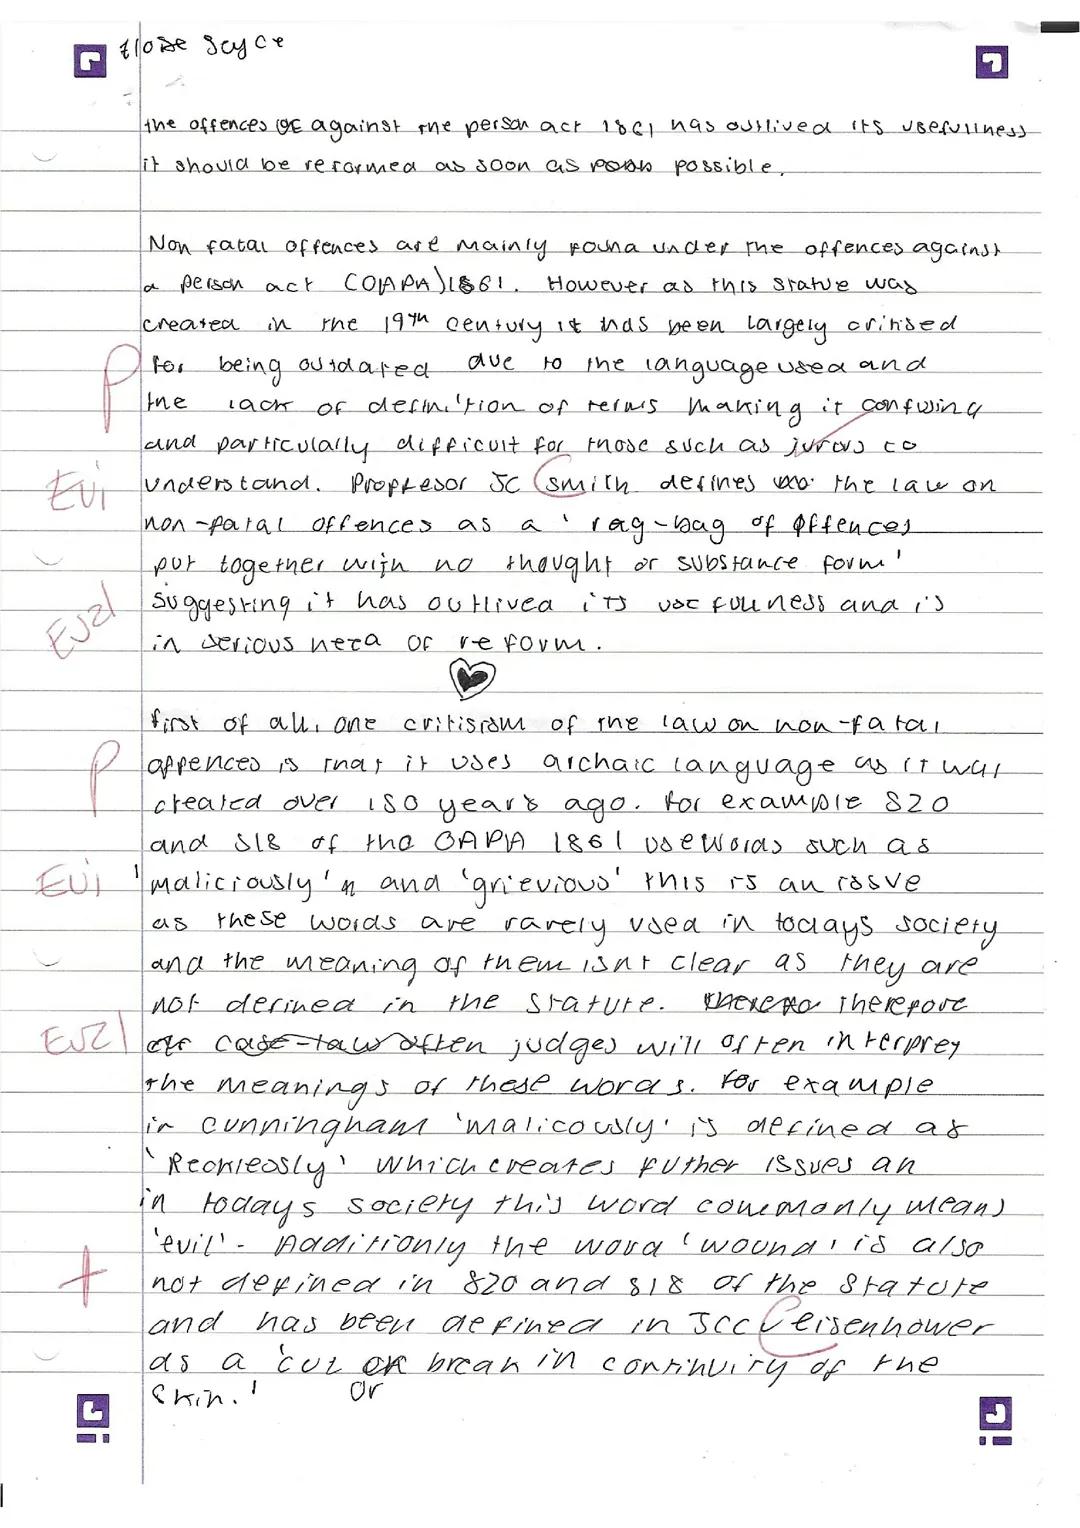 the offences OF against the person act 1861 has outlived its usefullness
it should be reformed as soon as possible.
Non fatal offences are mainly found under the offences against
a person act (OAPA) 1861. However as this statue was
created in the 19th century it has been largely critised
P for being outdated due to the language used and
the lack of definition of terms making it confusing
and particulally difficult for those such as jurors to
EVi understand. Proffesor JC smith defines the law on
non-fatal offences as a 'rag-bag of offences
put together with no thought or substance form'
EV21 suggesting it has outlived its usefullness and is
in serious need of reform.
first of all, one critisism of the law on non-fatal
P offences is that it uses archaic language as it was
created over 150 years ago. for example S20
and S18 of the OAPA 1861 use words such as
EVi 'maliciously' and 'grievious' this is an issue
as these words are rarely used in todays society
and the meaning of them isnt clear as they are
not defined in the stature. therefore
EV21 case law often judges will often interprey
the meanings of these words. for example
in cunningham 'malicously' is defined as
'Recklessly' which creates futher issues an
in todays society this word commonly means
'evil'. Additionly the word 'wound' is also
+ not defined in S20 and S18 of the Stature
and has been defined in JCC v eisenhower
as a 'cut or break in continuity of the
skin.' or